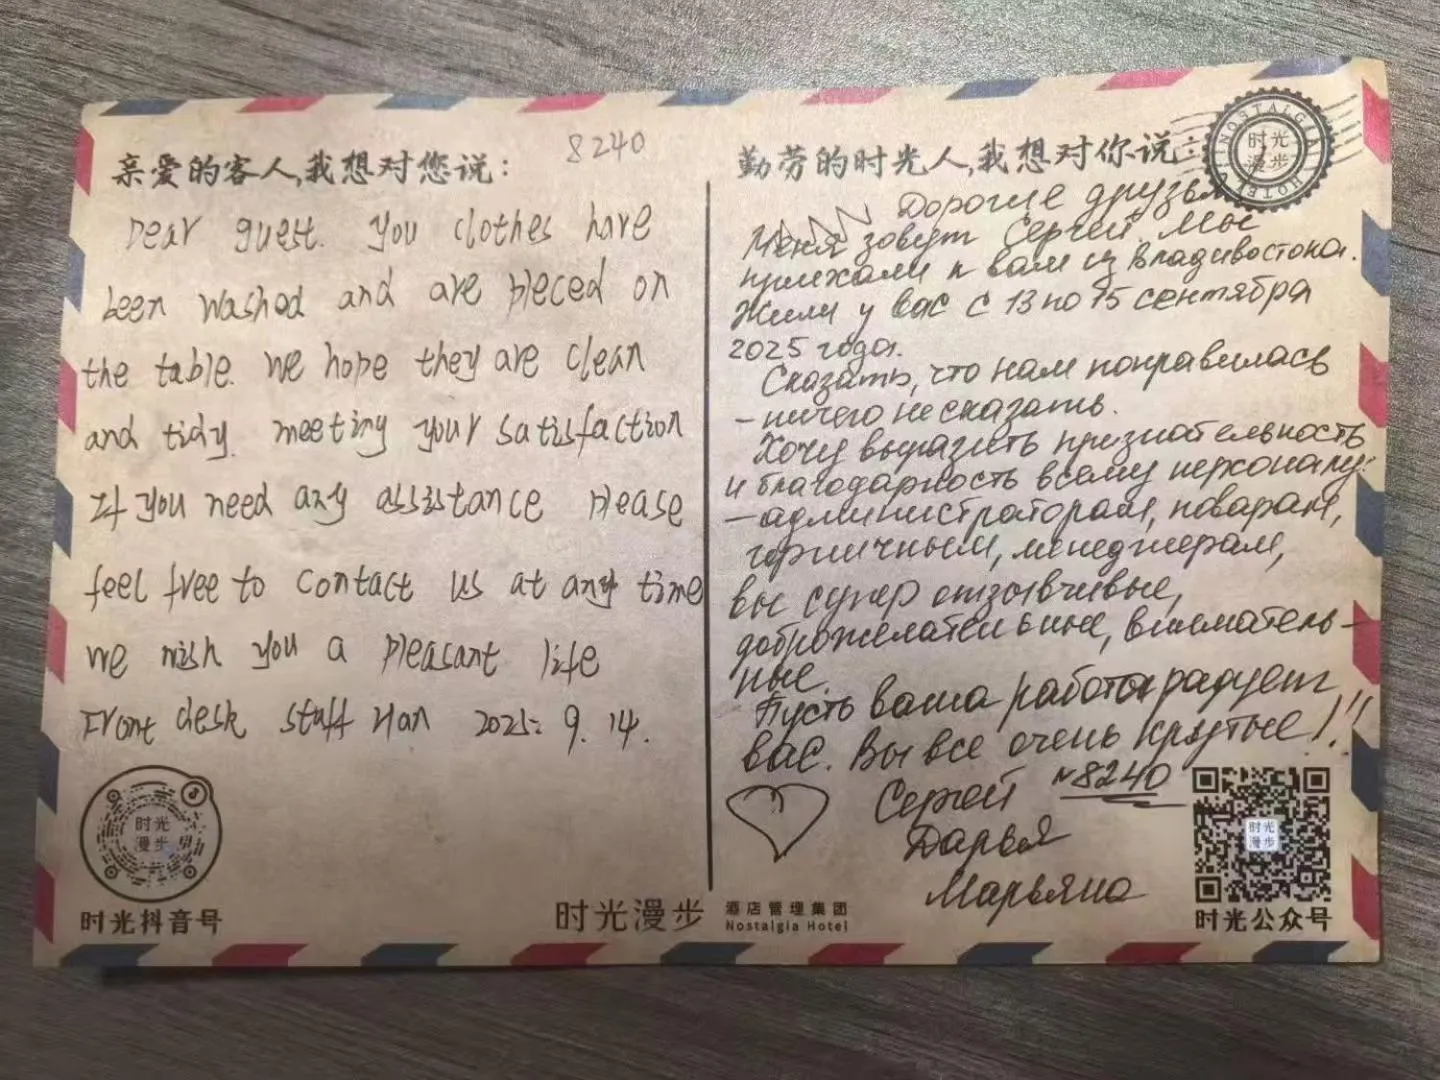 亲爱的客人,我想对您说:
8240
Dear guest. you clothes have
been washed and are pleced on
the table. we hope they are clean
and tidy. meeting your satisfaction
If you need any assistance please
feel free to contact us at any time
we wish you a pleasant life
Front desk staff Han 2025. 9. 14.
时光漫步
时光抖音号
勤劳的时光人,我想对你说:
NOSTALGIA HOTEL
时光漫步
Дорогие друзья
Меня зовут Сергей Мы
приехали к вам из Владивостока.
Жили у вас с 13 по 15 сентября
2025 года.
Сказать, что нам понравилась
– ничего не сказать.
Хочу выразить признательность
и благодарность всему персоналу:
– администраторам, поварам,
горничным, менеджерам,
вы супер отзывчивые,
доброжелательные, вниматель–
ные.
Пусть ваша работа радует
вас. Вы все очень крутые!!!
Сергей №8240
Дарья
Марьяна
时光漫步
时光公众号
时光漫步 酒店管理集团
Nostalgia Hotel